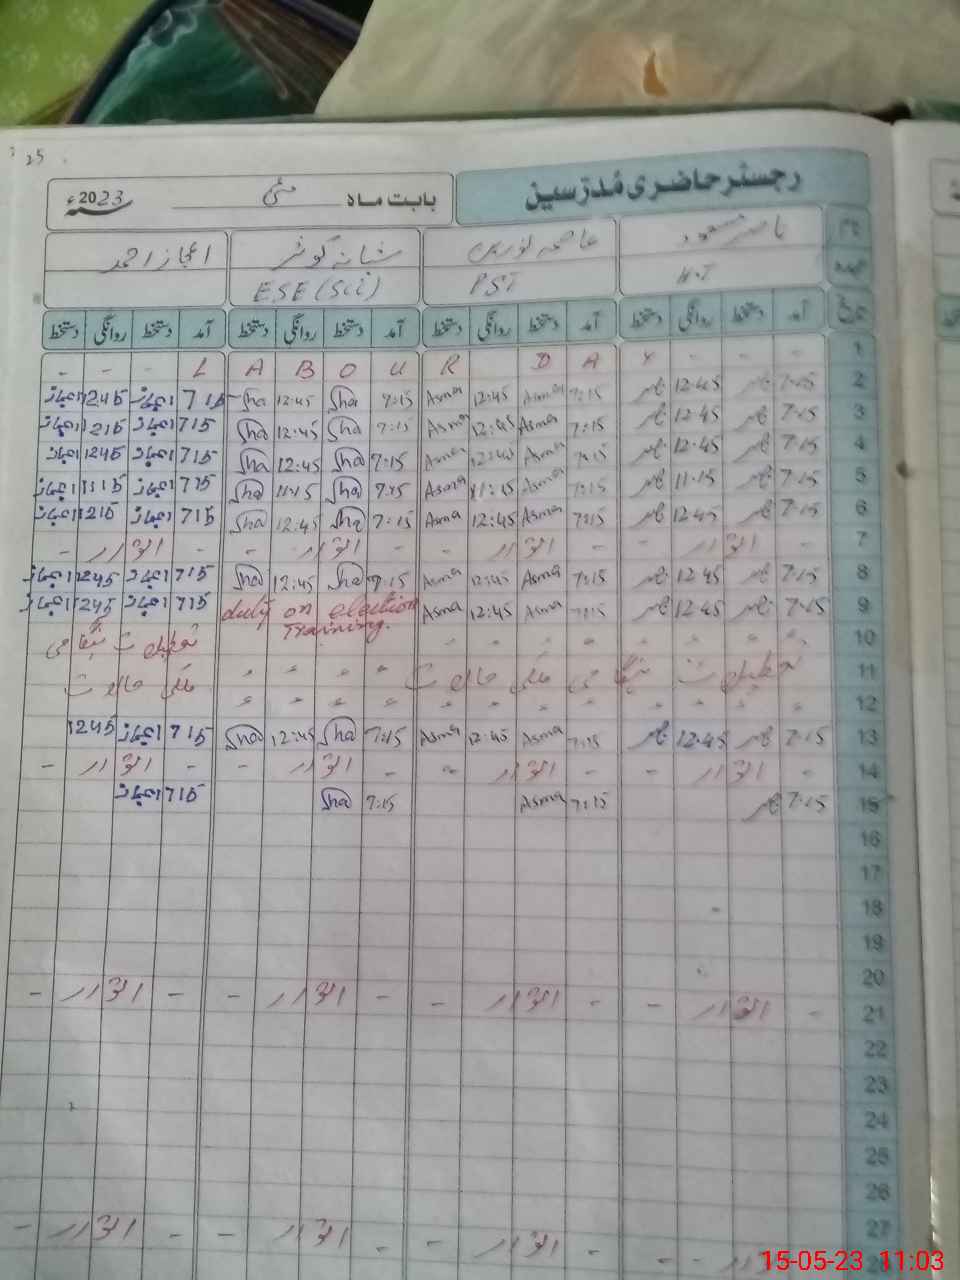 25
رجسٹر حاضری مُدرّسین
بابت ماہ مئی 2023ء
نام ناصر مسعود عاصمہ نورین شبانہ کوثر اعجاز احمد
عہدہ H.T PST ESE (Sci)
تاریخ آمد دستخط روانگی دستخط آمد دستخط روانگی دستخط آمد دستخط روانگی دستخط آمد دستخط روانگی دستخط
1 - - - L A B O U R D A Y - - -
2 7:15 ناصر 12:45 ناصر 7:15 Asma 12:45 Asma 7:15 Sha 12:45 Sha 715 اعجاز 1245 اعجاز
3 7:15 ناصر 12:45 ناصر 7:15 Asma 12:45 Asma 7:15 Sha 12:45 Sha 715 اعجاز 1215 اعجاز
4 7:15 ناصر 12:45 ناصر 7:15 Asma 12:45 Asma 7:15 Sha 12:45 Sha 715 اعجاز 1245 اعجاز
5 7:15 ناصر 11:15 ناصر 7:15 Asma 11:15 Asma 7:15 Sha 11:15 Sha 715 اعجاز 1115 اعجاز
6 7:15 ناصر 12:45 ناصر 7:15 Asma 12:45 Asma 7:15 Sha 12:45 Sha 715 اعجاز 1215 اعجاز
7 - اتوار - - اتوار - - اتوار - - اتوار -
8 7:15 ناصر 12:45 ناصر 7:15 Asma 12:45 Asma 7:15 Sha 12:45 Sha 715 اعجاز 1245 اعجاز
9 7:15 ناصر 12:45 ناصر 7:15 Asma 12:45 Asma duty on election Training. 715 اعجاز 1245 اعجاز
10 تعطیلات
11 تعطیلات ملکی حالات ملکی حالات
12
13 7:15 ناصر 12:45 ناصر 7:15 Asma 12:45 Asma 7:15 Sha 12:45 Sha 715 اعجاز 1245
14 - اتوار - - اتوار - - اتوار - - اتوار -
15 7:15 ناصر 7:15 Asma 7:15 Sha 715 اعجاز
16
17
18
19
20
21 - اتوار - - اتوار - - اتوار - - اتوار -
22
23
24
25
26
27
28 اتوار - - اتوار - - اتوار - - اتوار -
15-05-23 11:03